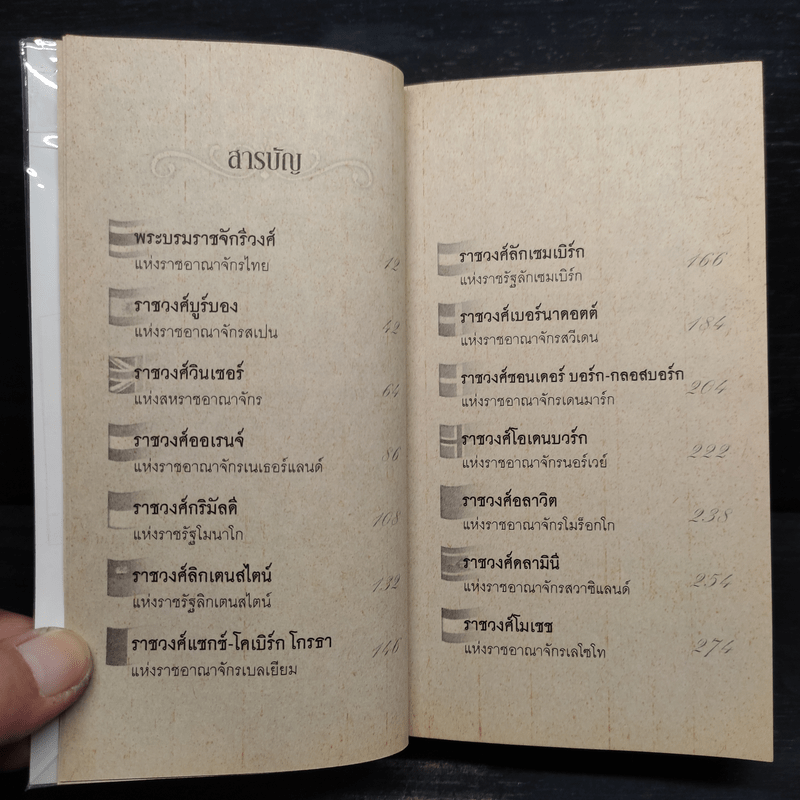 สารบัญ
พระบรมราชจักรีวงศ์
แห่งราชอาณาจักรไทย 12
ราชวงศ์บูร์บอง
แห่งราชอาณาจักรสเปน 42
ราชวงศ์วินเซอร์
แห่งสหราชอาณาจักร 64
ราชวงศ์ออเรนจ์
แห่งราชอาณาจักรเนเธอร์แลนด์ 86
ราชวงศ์กริมัลดี
แห่งราชรัฐโมนาโก 108
ราชวงศ์ลิกเตนสไตน์
แห่งราชรัฐลิกเตนสไตน์ 132
ราชวงศ์แซกซ์-โคเบิร์ก โกรธา
แห่งราชอาณาจักรเบลเยียม 146
ราชวงศ์ลักเซมเบิร์ก 166
แห่งราชรัฐลักเซมเบิร์ก
ราชวงศ์เบอร์นาดอตต์ 184
แห่งราชอาณาจักรสวีเดน
ราชวงศ์ซอนเดอร์ บอร์ก-กลอสบอร์ก
แห่งราชอาณาจักรเดนมาร์ก 204
ราชวงศ์โอเดนบวร์ก 222
แห่งราชอาณาจักรนอร์เวย์
ราชวงศ์อลาวิต 238
แห่งราชอาณาจักรโมร็อกโก
ราชวงศ์ดลามินี 254
แห่งราชอาณาจักรสวาซิแลนด์
ราชวงศ์โมเชช 274
แห่งราชอาณาจักรเลโซโท